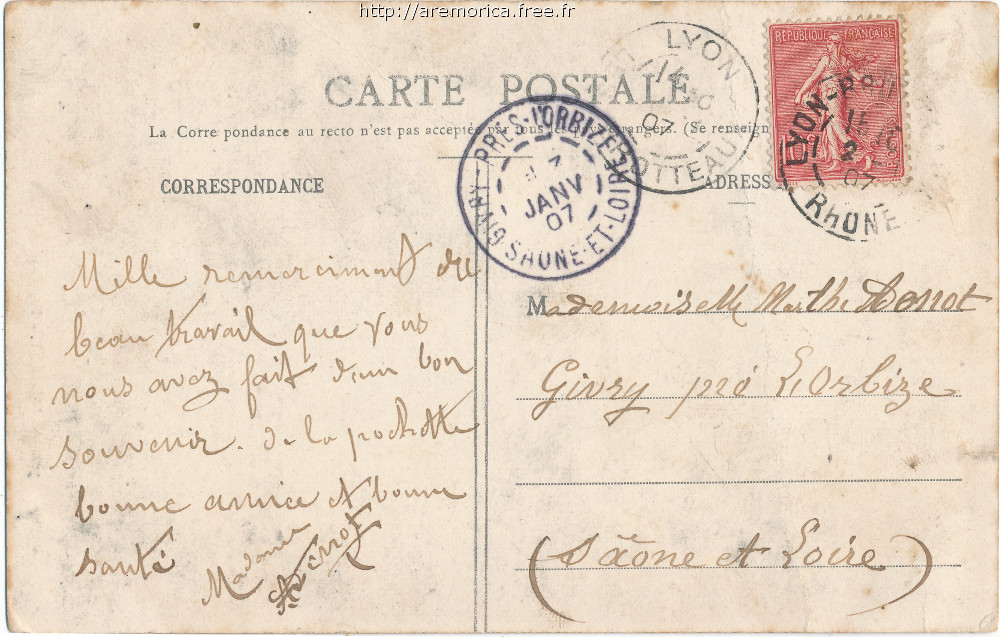 http://aremorica.free.fr
CARTE POSTALE
La Corre pondance au recto n'est pas acceptée par tous les pays étrangers. (Se renseign
CORRESPONDANCE
ADRESS
RÉPUBLIQUE FRANÇAISE
POSTES
LYON
07
OTTEAU
LYON
RHONE
07
GIVRY PRÈS-L'ORBIZE
SAONE-ET-LOIRE
JANV
07
Mille remerciment du
beau travail que vous
nous avez fait d'un bon
souvenir. de la pochette
bonne année et bonne
santé
Madame
Mademoiselle Marthe
Givry pré L'Orbize
(Sâone et Loire)